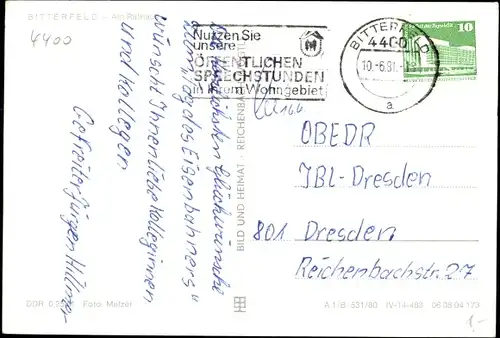 BITTERFELD – Am Rathaus
4400
Nutzen Sie
unsere
ÖFFENTLICHEN
SPRECHSTUNDEN
in Ihrem Wohngebiet
BITTERFELD
4400
10.-6.81.
a
10
Die herzlichsten Glückwünsche
zum „Tag des Eisenbahners“
wünscht Ihnen liebe Kolleginnen
und Kollegen
Gefreiter Jürgen
BILD UND HEIMAT · REICHENBACH
OBEDR
JBL-Dresden
801 Dresden
Reichenbachstr. 27
DDR Foto: Melzer
A 1/B 531/80 IV-14-483 06 08 04 173
1,-